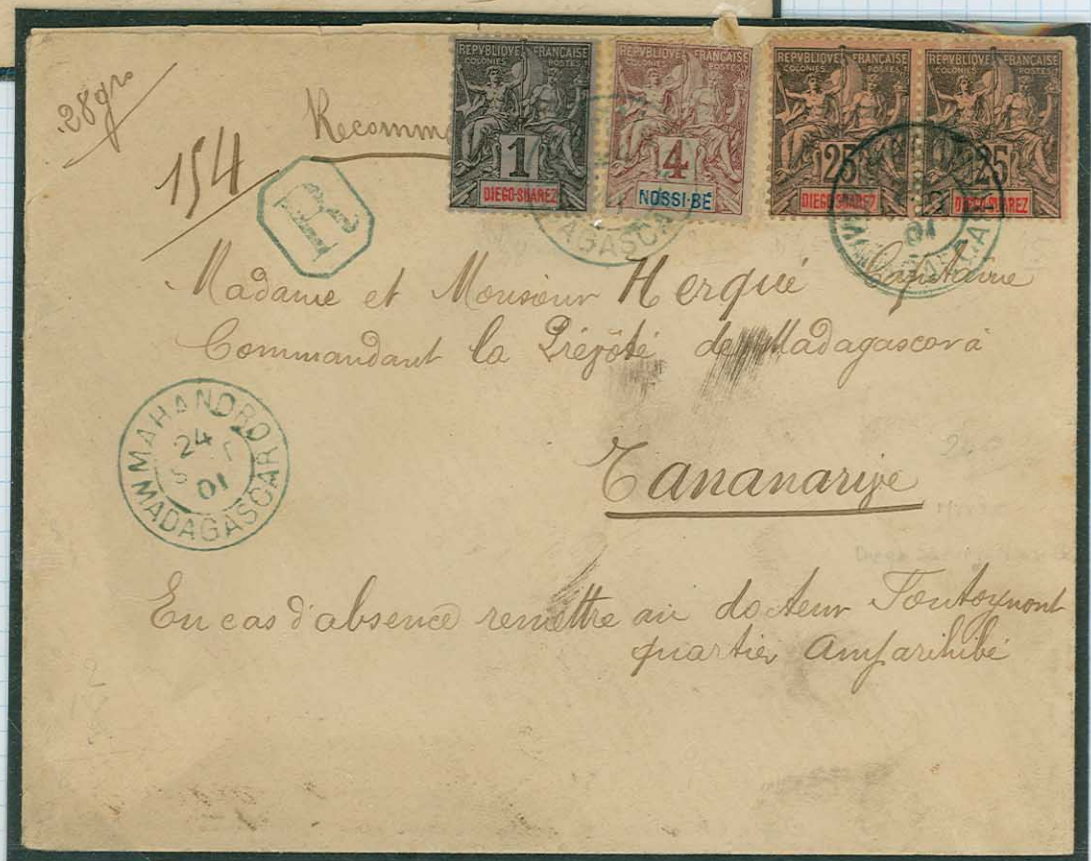 28 grs
154
Recomm
R
REPVBLIQVE FRANÇAISE
COLONIES POSTES
1
DIEGO-SUAREZ
REPVBLIQVE FRANÇAISE
COLONIES POSTES
4
NOSSI-BÉ
REPVBLIQVE FRANÇAISE
COLONIES POSTES
25
DIEGO-SUAREZ
REPVBLIQVE FRANÇAISE
COLONIES POSTES
25
DIEGO-SUAREZ
AGASCA
01
Madame et Monsieur Herqué Capitaine
Commandant la Prévôté de Madagascar à
Tananarive
MAHANORO
24
01
MADAGASCAR
En cas d'absence remettre au docteur Fontoynont
quartier Amparihibé